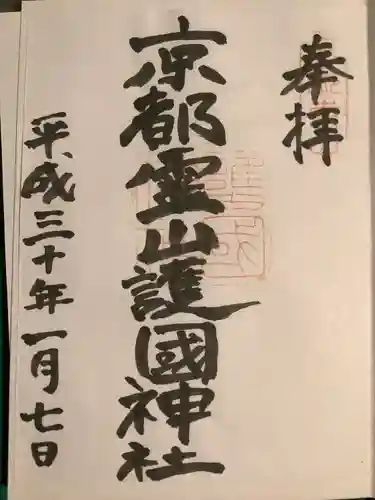 奉拝
京都霊山護國神社
平成三十年一月七日